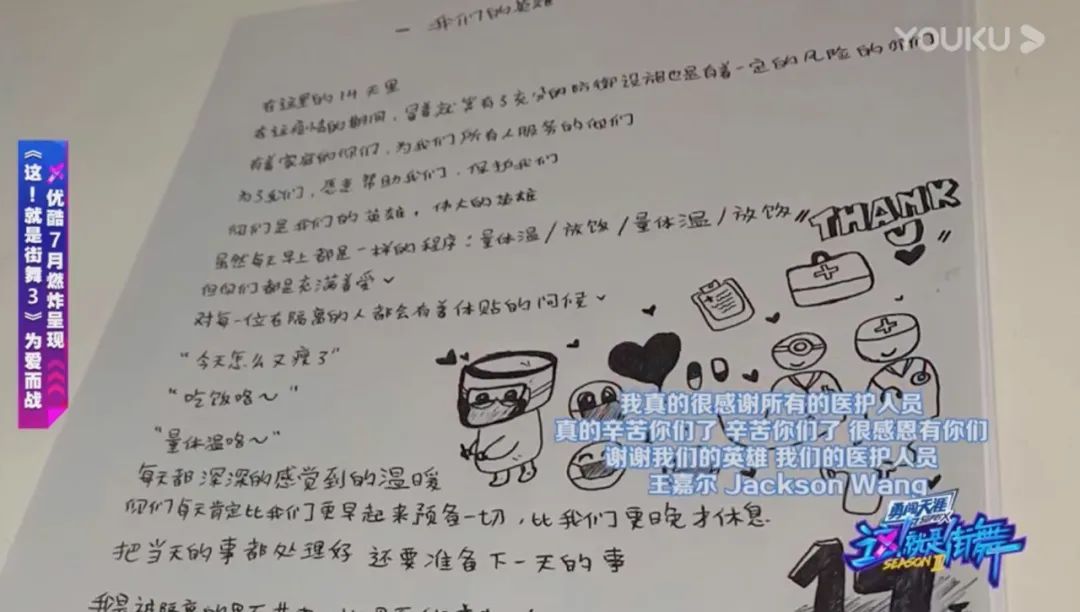 YOUKU
一 我们的英雄
在这里的14天里
在这疫情的期间，冒着就算有了充分的防御设施也是有着一定的风险的你们
有着家庭的你们，为我们所有人服务的你们
为了我们，愿意帮助我们，保护我们
你们是我们的英雄，伟大的英雄
虽然每天早上都是一样的程序：量体温/放饭/量体温/放饭
但你们都是充满着爱
对每一位在隔离的人都会有着体贴的问候
"THANK
U"
"今天怎么又瘦了"
"吃饭咯～"
"量体温咯～"
每天都深深的感觉到的温暖
你们每天肯定比我们更早起来预备一切，比我们更晚才休息
把当天的事都处理好 还要准备下一天的事
我是被隔离的
14
优酷7月燃炸呈现
《这！就是街舞3》为爱而战
我真的很感谢所有的医护人员
真的辛苦你们了 辛苦你们了 很感恩有你们
谢谢我们的英雄 我们的医护人员
王嘉尔 Jackson Wang
勇闯天涯
这！就是街舞
SEASON III